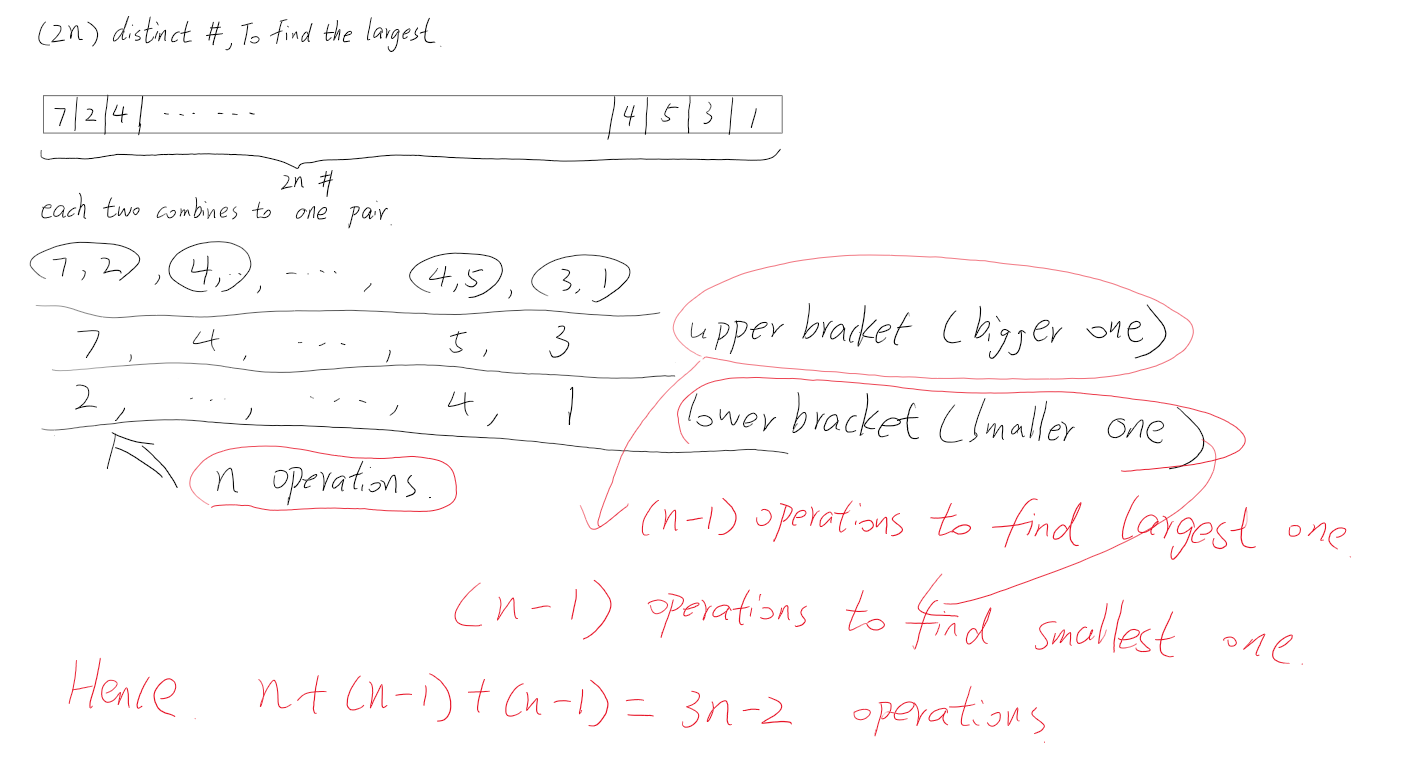 (2n) distinct #, To find the largest.
7 | 2 | 4 | --- --- | 4 | 5 | 3 | 1
2n #
each two combines to one pair.
(7,2), (4,..), -...., (4,5), (3,1)
7, 4, ---, 5, 3 upper bracket (bigger one)
2, ..., ----, 4, 1 lower bracket (smaller one)
n operations.
(n-1) operations to find largest one.
(n-1) operations to find smallest one.
Hence n+(n-1)+(n-1)=3n-2 operations